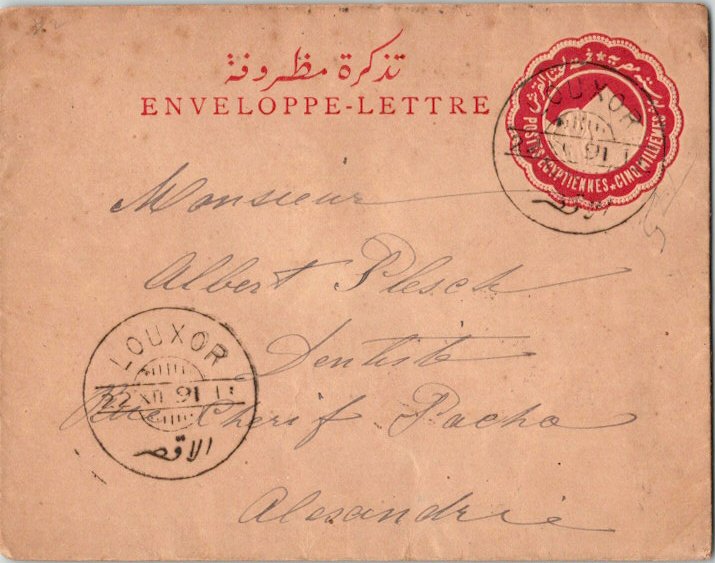 تذكرة مظروفة
ENVELOPPE-LETTRE
POSTES EGYPTIENNES ★ CINQ MILLIÈMES
LOUXOR
91
Monsieur
Albert Plesch
Dentiste
Rue Cherif Pacha
Alexandrie
LOUXOR
22 XII 91
الاقصر